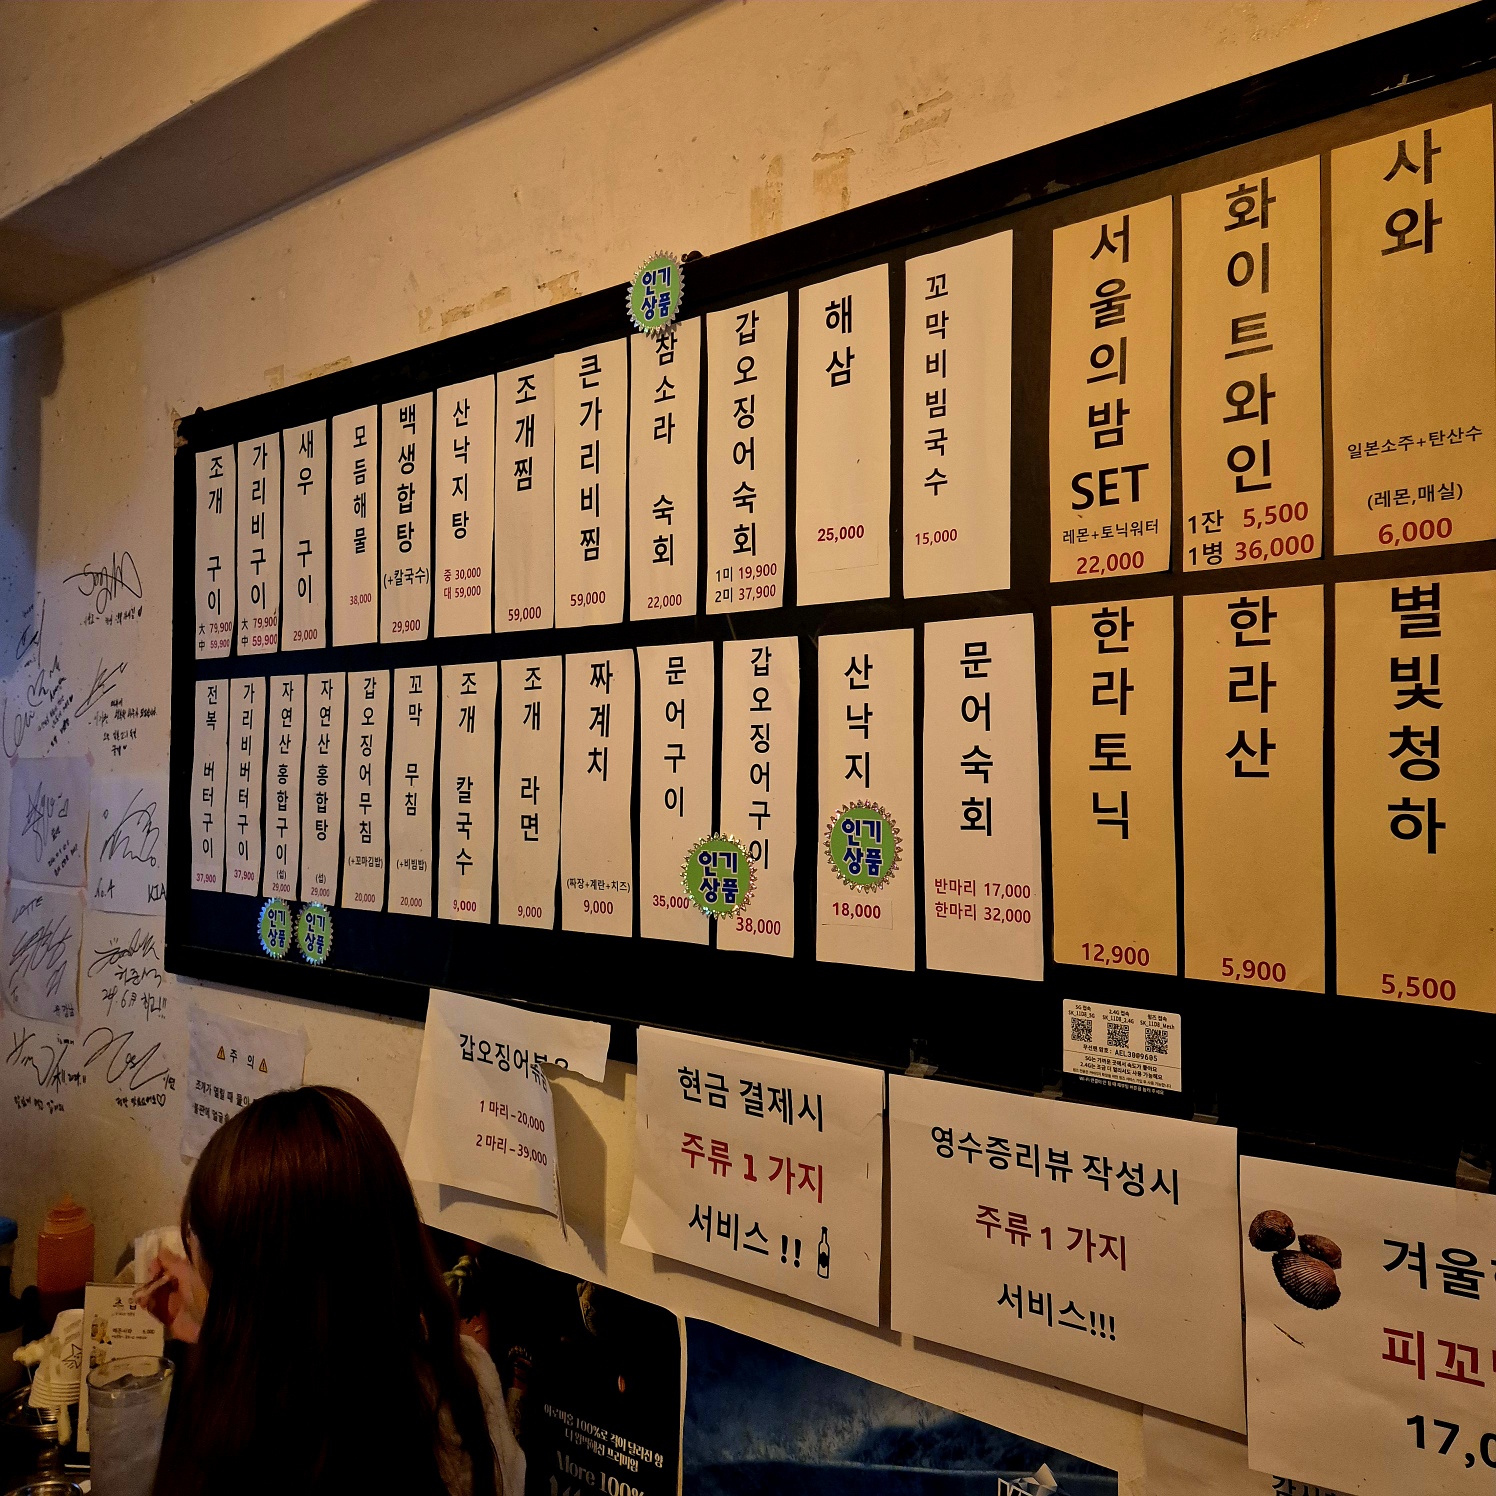 조개 구이
大 79,900
中 59,900
가리비구이
大 79,900
中 59,900
새우 구이
29,000
모듬해물
38,000
백생합탕
(+칼국수)
29,900
산낙지탕
중 30,000
대 59,000
조개찜
59,000
큰가리비찜
59,000
인기
상품
참소라 숙회
22,000
갑오징어숙회
1미 19,900
2미 37,900
해삼
25,000
꼬막비빔국수
15,000
서울의밤
SET
레몬+토닉워터
22,000
화이트와인
1잔 5,500
1병 36,000
사와
일본소주+탄산수
(레몬,매실)
6,000
전복 버터구이
37,900
가리비버터구이
37,900
자연산홍합구이
(섭)
29,000
인기
상품
자연산홍합탕
(섭)
29,000
인기
상품
갑오징어무침
(+꼬마김밥)
20,000
꼬막 무침
(+비빔밥)
20,000
조개 칼국수
9,000
조개 라면
9,000
짜계치
(짜장+계란+치즈)
9,000
문어구이
35,000
갑오징어구이
인기
상품
38,000
산낙지
인기
상품
18,000
문어숙회
반마리 17,000
한마리 32,000
한라토닉
12,900
한라산
5,900
별빛청하
5,500
5G 접속
SK_11D8_5G
2.4G 접속
SK_11D8_2.4G
SK_11D8_Mesh
AEL3809605
주 의
조개가 열릴 때
갑오징어
1 마리 – 20,000
2 마리 – 39,000
현금 결제시
주류 1 가지
서비스 !!
영수증리뷰 작성시
주류 1 가지
서비스!!!
겨울
피꼬
17,0
More 100%
한준석
24. 6.
No.4
KIA